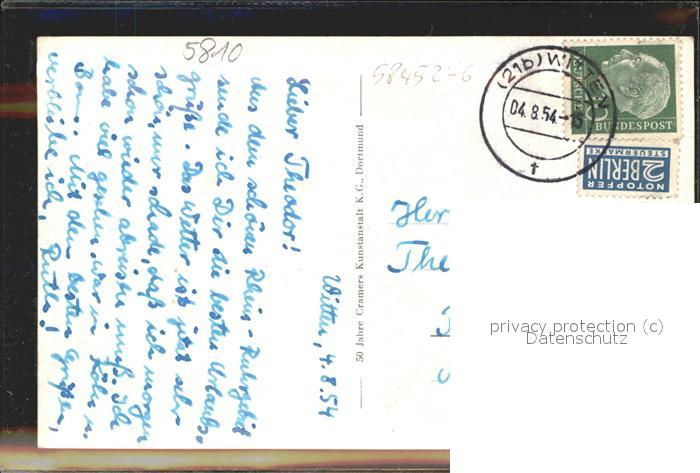 5810
58452-6
(21b) WITTEN
04.8.54.-15
f
BUNDESPOST
NOTOPFER
2 BERLIN
STEUERMARKE
Witten, 4.8.54
Lieber Theodor!
Aus dem schönen Rhein-Ruhrgebiet
sende ich Dir die besten Urlaubs-
grüße. Das Wetter ist jetzt sehr
schön, nur schade, daß ich morgen
schon wieder abreisen muß. Ich
habe viel gesehen, war in Köln u.
Bonn. Mit den besten Grüßen,
verbleibe ich,
50 Jahre Cramers Kunstanstalt K.G., Dortmund
Her
The
privacy protection (c)
Datenschutz